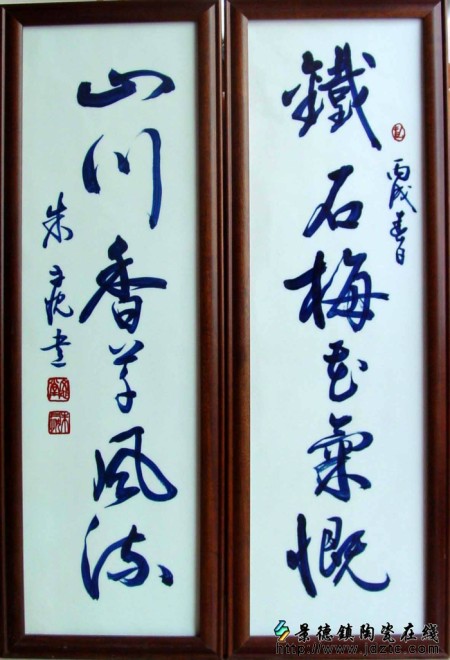 鐵石梅花氣慨
丙戌春日
山川香草風流
朱
書
景德镇陶瓷在线
www.jdztc.com